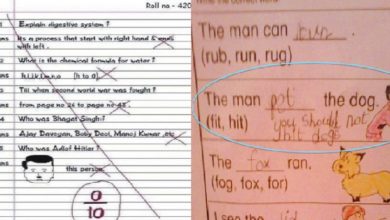 Roll no - 420
Explain digestive system ?
ns Its a process that start with right hand & ends
with left .
What is the chemical formula for water ?
ns h,i,j,k,l,m,n,o (h to o)
Till when second world war was faught ?
ns from page no 24 to page no 42
Who was Bhagat Singh?
ns Ajay Devegan, Boby Deol, Manoj Kumar ,etc
Who was Adlof Hitler ?
ns this person.
0
10
The man can run
(rub, run, rug)
The man pot the dog.
(fit, hit) you should not
hit dogs
The fox ran.
(fog, fox, for)